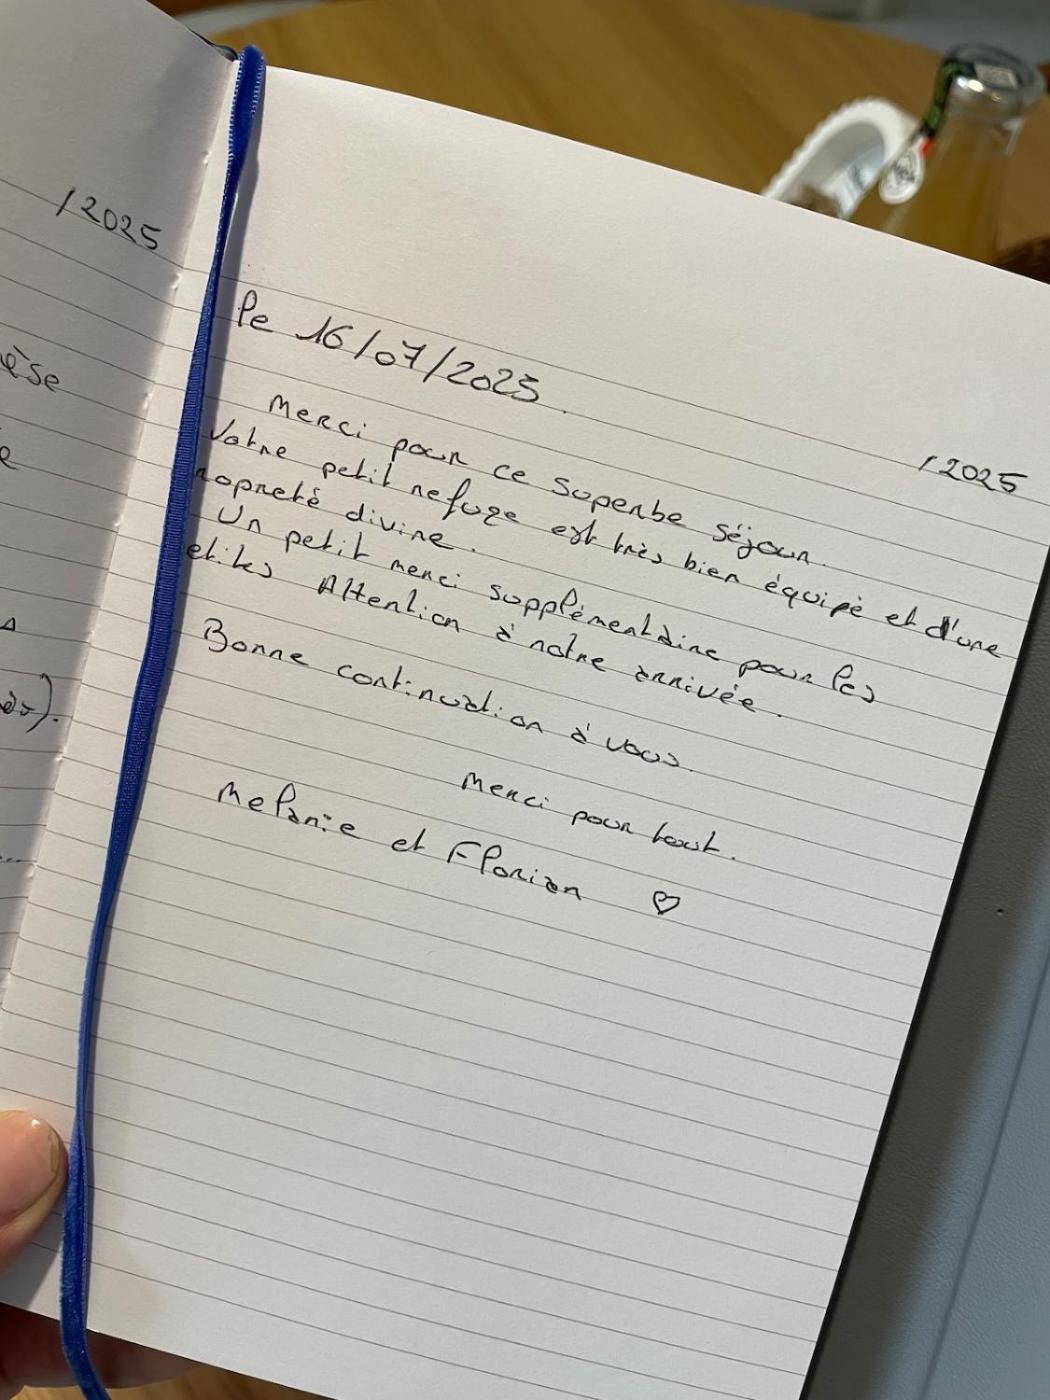 /2025
èse
Le 16/07/2025.
/2025
Merci pour ce superbe séjour.
Votre petit refuge est très bien équipé et d'une
ropreté divine.
Un petit merci supplémentaire pour les
etites Attention à notre arrivée.
Bonne continuation à vous
Merci pour tout.
Melanie et Florian ♡